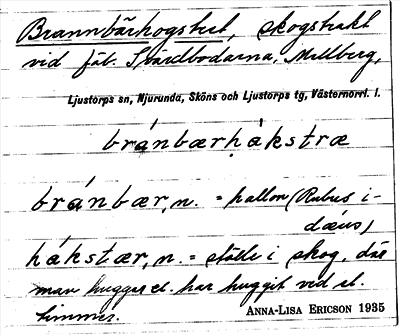 Brannbärhogstret, skogstrakt
vid fäb. Svärdbodarna, Mellberg,
Ljustorps sn, Njurunda, Sköns och Ljustorps tg, Västernorrl. l.
bránbærhákstræ
bránbær, n. = hallon (Rubus i-
dæus)
hákstær, n. = ställe i skog, där
man hugger el. har huggit ved el.
timmer.
ANNA-LISA ERICSON 1935